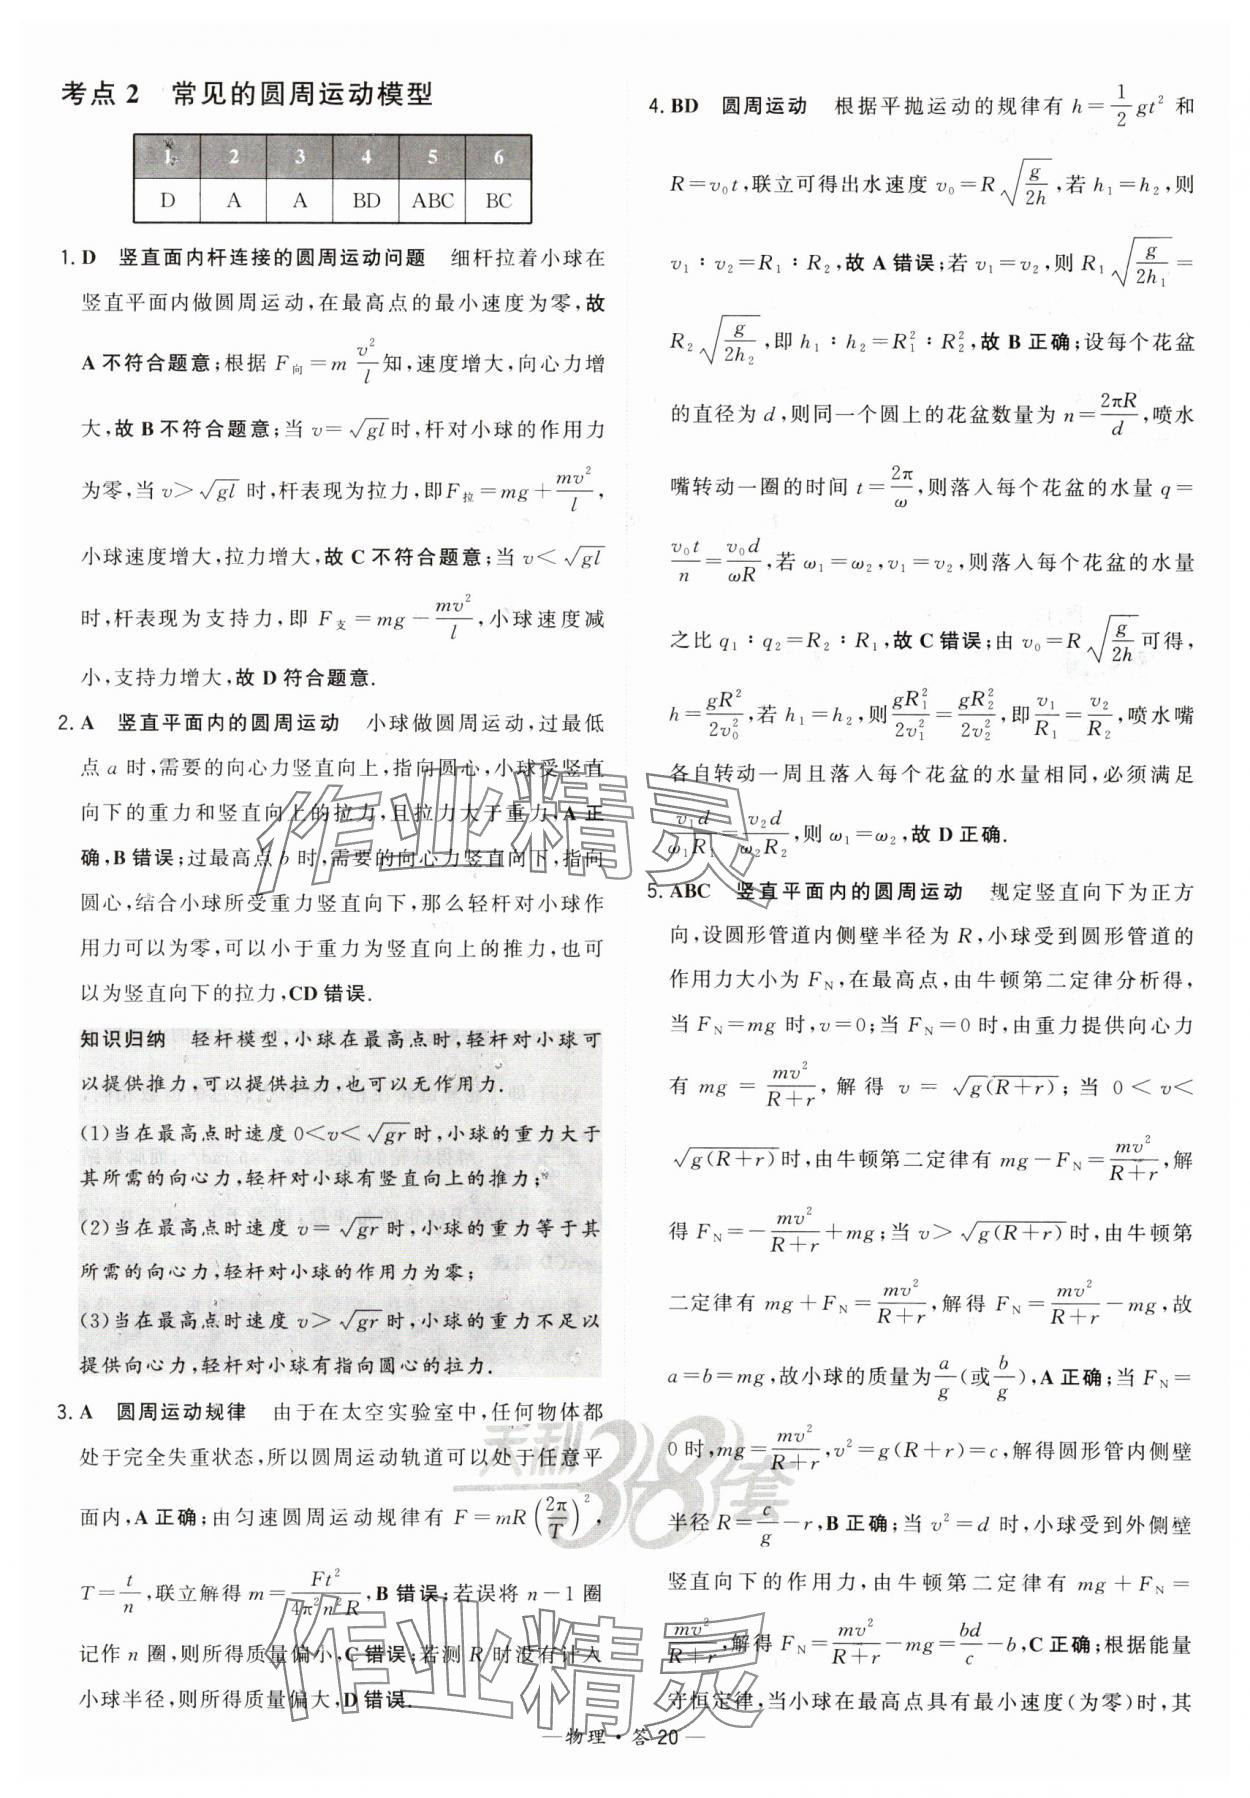 考点 2 常见的圆周运动模型
1 2 3 4 5 6
D A A BD ABC BC
1. D 竖直面内杆连接的圆周运动问题 细杆拉着小球在
竖直平面内做圆周运动,在最高点的最小速度为零,故
A 不符合题意;根据 F向=m v²/l 知,速度增大,向心力增
大,故 B 不符合题意;当 v=√gl 时,杆对小球的作用力
为零,当 v>√gl 时,杆表现为拉力,即F拉=mg+mv²/l,
小球速度增大,拉力增大,故 C 不符合题意;当 v<√gl
时,杆表现为支持力,即 F支=mg-mv²/l,小球速度减
小,支持力增大,故 D 符合题意.
2. A 竖直平面内的圆周运动 小球做圆周运动,过最低
点 a 时,需要的向心力竖直向上,指向圆心,小球受竖直
向下的重力和竖直向上的拉力,且拉力大于重力,A 正
确,B 错误;过最高点 b 时,需要的向心力竖直向下,指向
圆心,结合小球所受重力竖直向下,那么轻杆对小球作
用力可以为零,可以小于重力为竖直向上的推力,也可
以为竖直向下的拉力,CD 错误.
知识归纳 轻杆模型,小球在最高点时,轻杆对小球可
以提供推力,可以提供拉力,也可以无作用力.
(1)当在最高点时速度 0<v<√gr 时,小球的重力大于
其所需的向心力,轻杆对小球有竖直向上的推力;
(2)当在最高点时速度 v=√gr 时,小球的重力等于其
所需的向心力,轻杆对小球的作用力为零;
(3)当在最高点时速度 v>√gr 时,小球的重力不足以
提供向心力,轻杆对小球有指向圆心的拉力.
3. A 圆周运动规律 由于在太空实验室中,任何物体都
处于完全失重状态,所以圆周运动轨道可以处于任意平
面内,A 正确;由匀速圆周运动规律有 F=mR(2π/T)²,
T=t/n,联立解得 m=Ft²/4π²n²R,B 错误;若误将 n-1 圈
记作 n 圈,则所得质量偏小,C 错误;若测 R 时没有计入
小球半径,则所得质量偏大,D 错误.
4. BD 圆周运动 根据平抛运动的规律有 h=1/2 gt² 和
R=v₀t,联立可得出水速度 v₀=R√(g/2h),若 h₁=h₂,则
v₁∶v₂=R₁∶R₂,故 A 错误;若 v₁=v₂,则 R₁√(g/2h₁)=
R₂√(g/2h₂),即 h₁∶h₂=R₁²∶R₂²,故 B 正确;设每个花盆
的直径为 d,则同一个圆上的花盆数量为 n=2πR/d,喷水
嘴转动一圈的时间 t=2π/ω,则落入每个花盆的水量 q=
v₀t/n=v₀d/ωR,若 ω₁=ω₂,v₁=v₂,则落入每个花盆的水量
之比 q₁∶q₂=R₂∶R₁,故 C 错误;由 v₀=R√(g/2h)可得,
h=gR²/2v₀²,若 h₁=h₂,则gR₁²/2v₁²=gR₂²/2v₂²,即v₁/R₁=v₂/R₂,喷水嘴
各自转动一周且落入每个花盆的水量相同,必须满足
v₁d/ω₁R₁=v₂d/ω₂R₂,则 ω₁=ω₂,故 D 正确.
5. ABC 竖直平面内的圆周运动 规定竖直向下为正方
向,设圆形管道内侧壁半径为 R,小球受到圆形管道的
作用力大小为 F_N,在最高点,由牛顿第二定律分析得,
当 F_N=mg 时,v=0;当 F_N=0 时,由重力提供向心力
有 mg=mv²/(R+r),解得 v=√g(R+r);当 0<v<
√g(R+r)时,由牛顿第二定律有 mg-F_N=mv²/(R+r),解
得 F_N=-mv²/(R+r)+mg;当 v>√g(R+r)时,由牛顿第
二定律有 mg+F_N=mv²/(R+r),解得 F_N=mv²/(R+r)-mg,故
a=b=mg,故小球的质量为a/g(或b/g),A 正确;当 F_N=
0 时,mg=mv²/(R+r),v²=g(R+r)=c,解得圆形管内侧壁
半径 R=c/g-r,B 正确;当 v²=d 时,小球受到外侧壁
竖直向下的作用力,由牛顿第二定律有 mg+F_N=
mv²/(R+r),解得 F_N=mv²/(R+r)-mg=bd/c-b,C 正确;根据能量
守恒定律,当小球在最高点具有最小速度(为零)时,其
作业精灵
天利38套
作业精灵
—物理·答 20—